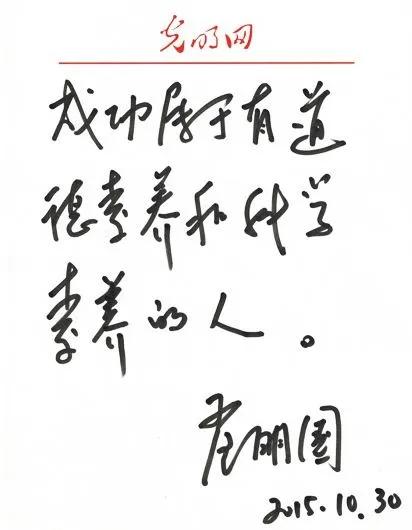 光明网
成功属于有道
德素养和科学
素养的人。
明国
2015.10.30